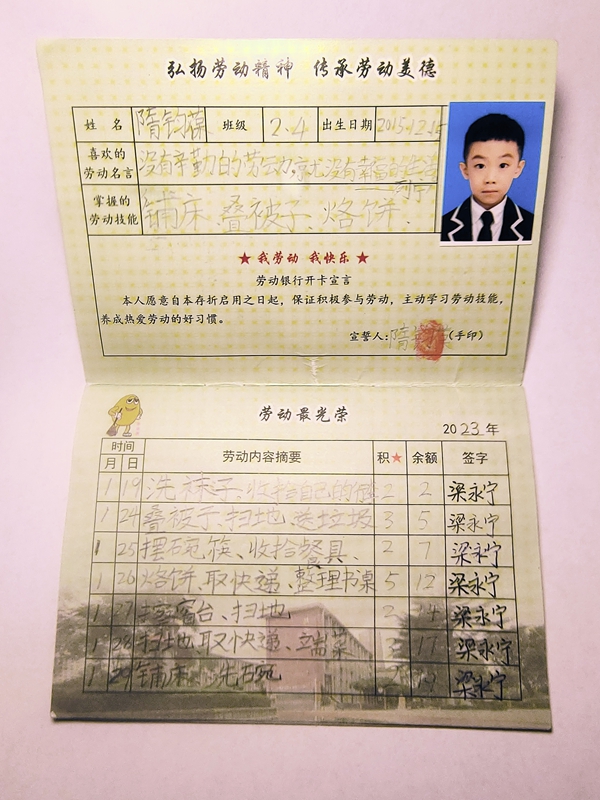 弘扬劳动精神 传承劳动美德
姓 名 隋钧葆 班级 2.4 出生日期 2015.12.15
喜欢的劳动名言 没有辛勤的劳动,就没有幸福的生活
掌握的劳动技能 铺床、叠被子、烙饼、
★ 我劳动 我快乐 ★
劳动银行开卡宣言
本人愿意自本存折启用之日起,保证积极参与劳动,主动学习劳动技能,
养成热爱劳动的好习惯。
宣誓人: 隋 (手印)
劳动最光荣
2023年
时间 劳动内容摘要 积★ 余额 签字
月 日
1 19 洗袜子、收拾自己的 2 2 梁永宁
1 24 叠被子、扫地、送垃圾 3 5 梁永宁
1 25 摆碗筷、收拾餐具、 2 7 梁永宁
1 26 烙饼、取快递、整理书桌 5 12 梁永宁
1 27 擦窗台、扫地 2 14 梁永宁
1 28 扫地、取快递、端菜 3 17 梁永宁
1 29 铺床、洗碗 2 19 梁永宁